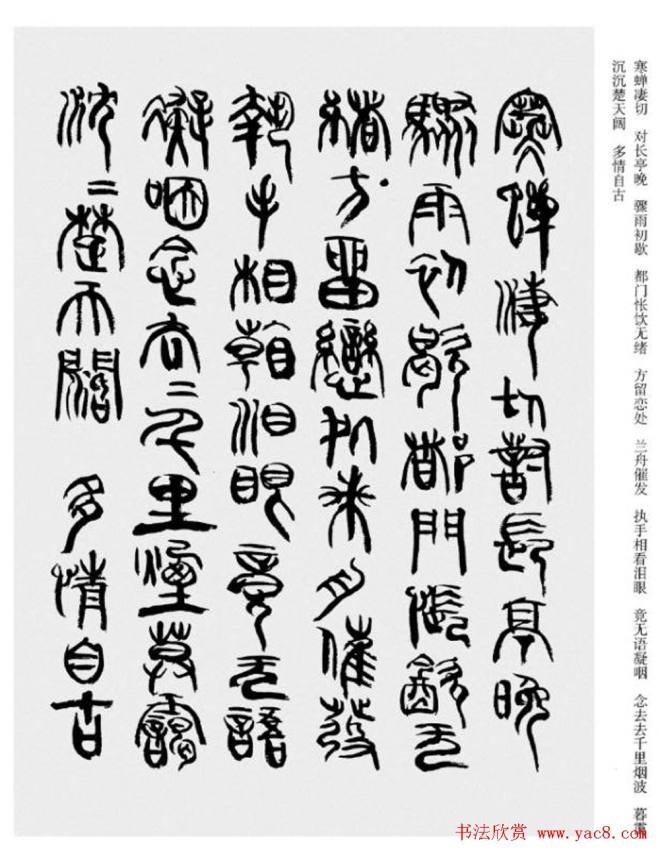 寒蝉凄切 对长亭晚 骤雨初歇 都门怅饮无绪 方留恋处 兰舟催发 执手相看泪眼 竟无语凝咽 念去去千里烟波 暮霭
沉沉楚天阔 多情自古
寒蟬淒切對長亭晚
驟雨初歇都門帳飲无
緒方留戀処舟催發
執手相看泪眼竟无語
凝咽念去〻千里煙莫靄
沈〻楚天闊 多情自古
书法欣赏 www.yac8.com